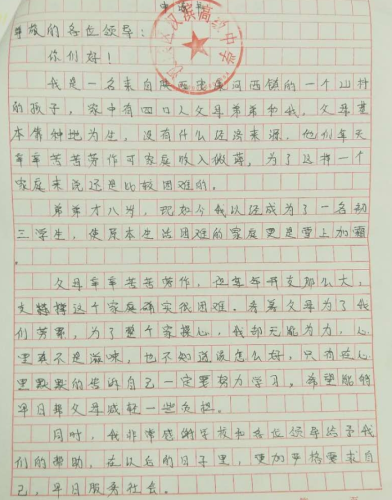 申请书
尊敬的各位领导:
你们好!
我是一名来自陕西 河西镇的一个山村
的孩子,家中有四口人父母弟弟和我,父母基
本靠种地为生,没有什么经济来源,他们每天
辛辛苦苦劳作可家庭收入微薄,为了这样一个
家庭来说还是比较困难的。
弟弟才八岁,现如今我以经成为了一名初
三学生,使原本生活困难的家庭更是雪上加霜
。
父母辛辛苦苦劳作,但每年开支那么大,
支撑这个家庭确实很困难。看着父母为了我
们劳累,为了整个家操心,我却无能为力,心
里真不是滋味,也不知道该怎么好,只有在心
里默默的告诉自己一定要努力学习,希望能够
早日帮父母减轻一些负担。
同时,我非常感谢学校和各位领导给予我
们的帮助,在以后的日子里,更加严格要求自
己,早日服务社会。